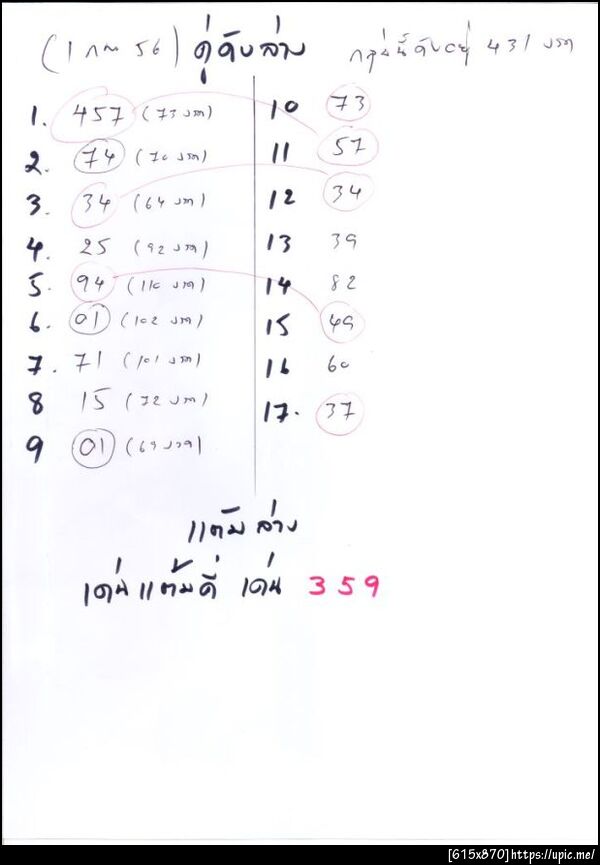 (1 กค 56) คู่ดับล่าง
กลุ่มนี้ดับอยู่ 431 งวด
1. 457 (73 งวด)
2. 74 (70 งวด)
3. 34 (64 งวด)
4. 25 (92 งวด)
5. 94 (110 งวด)
6. 01 (102 งวด)
7. 71 (101 งวด)
8 15 (72 งวด)
9 01 (69 งวด)
10 73
11 57
12 34
13 39
14 82
15 49
16 60
17. 37
แต้มล่าง
เด่นแต้มคี่ เด่น 359
[615x870]https://upic.me/